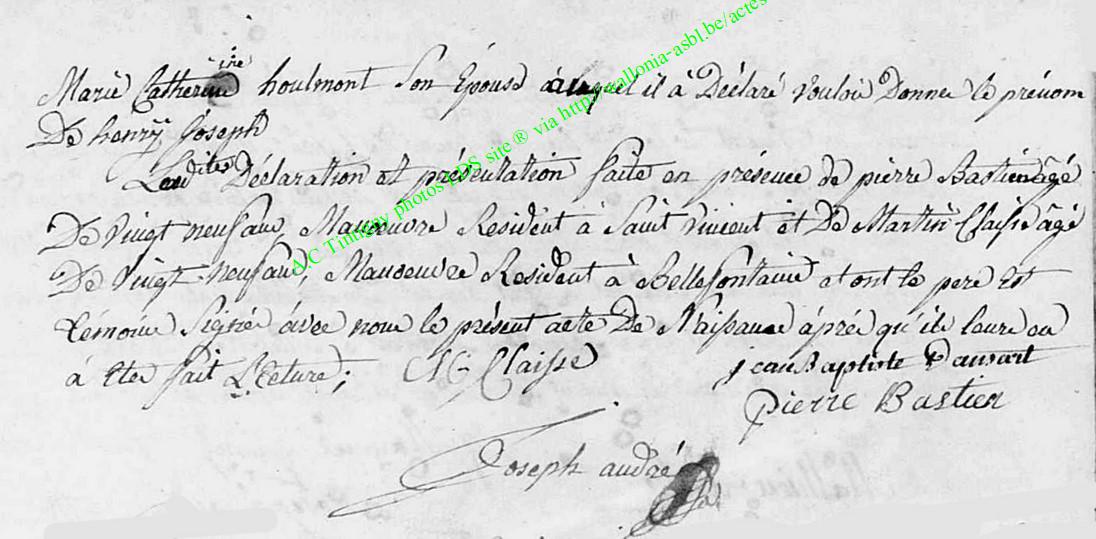 Marie Catherine houlmont son Epouse auquel il à Déclaré vouloir Donner le prénom
De henry Joseph
Lesdites Déclaration et présentation faite en présence de pierre Bastien âgé
De vingt neuf ans, Manoeuvre Resident à Saint Vincent et De Martin Claisse âgé
De vingt-neuf ans, Manoeuvre Resident à Bellefontaine et ont le pere et
témoins Signée avec nous le présent acte De Naissance après qu'ils leure en
à èter fait Lecture;
M Claisse
jean Baptiste
Pierre Bastien
Joseph andré
A.C Tintigny photos LDS site ® via http://wallonia-asbl.be/actes